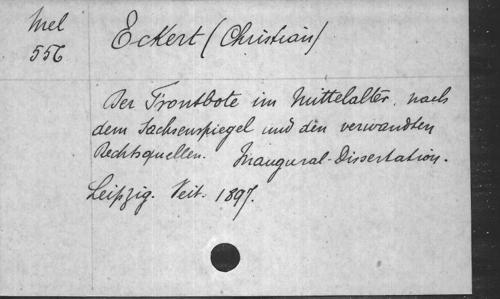 Mel
556
Eckert (Christian)
Der Fronbote im Mittelalter, nach
dem Sachsenspiegel und den verwandten
Rechtsquellen. Inaugural-Dissertation.
Leipzig. Veit. 1897.